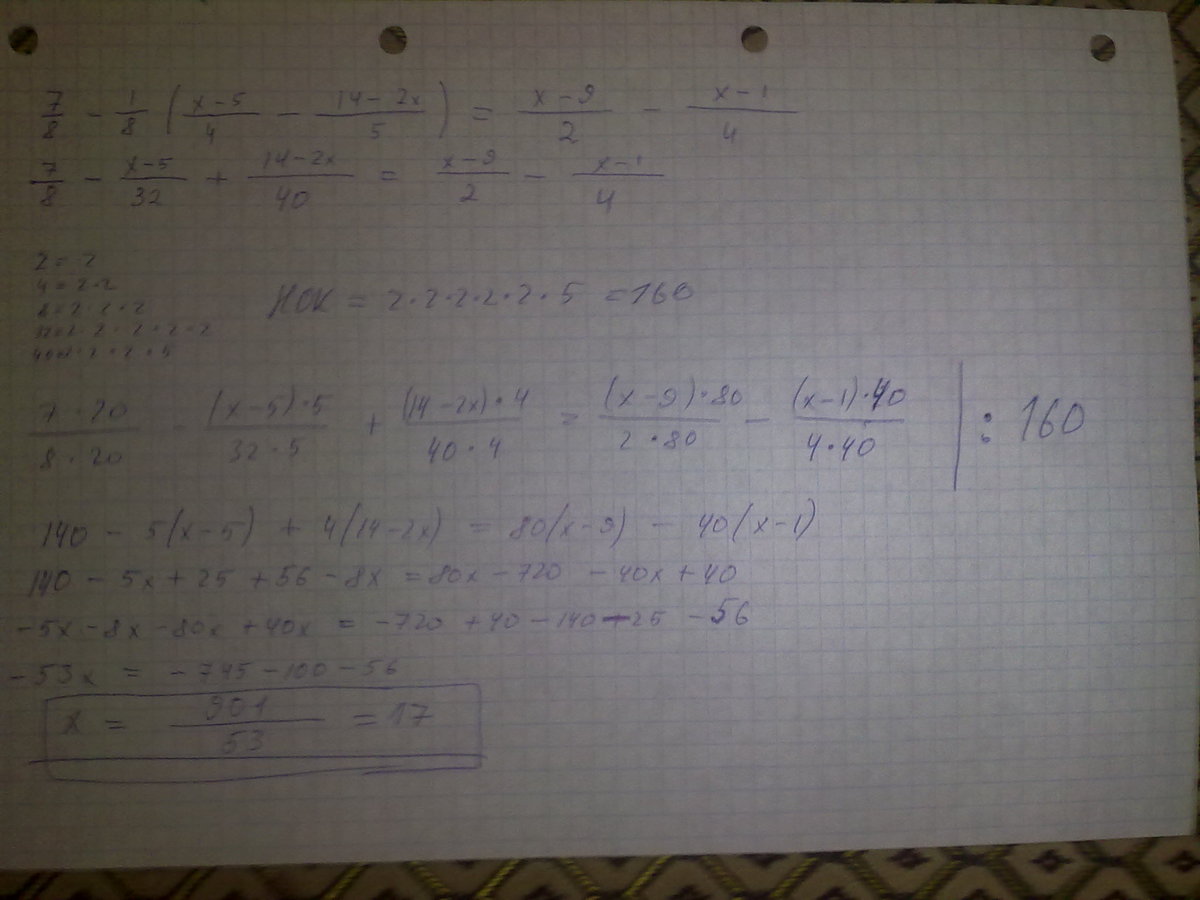 7/8 - 1/8 ( (x-5)/4 - (14-2x)/5 ) = (x-9)/2 - (x-1)/4
7/8 - (x-5)/32 + (14-2x)/40 = (x-9)/2 - (x-1)/4
2 = 2
4 = 2·2
8 = 2·2·2
32=2·2·2·2·2
40=2·2·2·5
НОК = 2·2·2·2·2·5 = 160
(7·20)/(8·20) - ((x-5)·5)/(32·5) + ((14-2x)·4)/(40·4) = ((x-9)·80)/(2·80) - ((x-1)·40)/(4·40) | : 160
140 - 5(x-5) + 4(14-2x) = 80(x-9) - 40(x-1)
140 - 5x + 25 + 56 - 8x = 80x - 720 - 40x + 40
-5x - 8x - 80x + 40x = -720 + 40 - 140 - 25 - 56
-53x = -745 - 100 - 56
x = 901/53 = 17